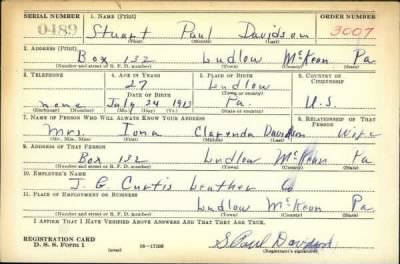 SERIAL NUMBER
1. NAME (Print)
ORDER NUMBER
0489
Stuart Paul Davidson
3007
(First) (Middle) (Last)
2. ADDRESS (Print)
Box 132 Ludlow McKean Pa
(Number and street or R. F. D. number) (Town) (County) (State)
3. TELEPHONE
4. AGE IN YEARS
5. PLACE OF BIRTH
6. COUNTRY OF CITIZENSHIP
27
Ludlow
(Town or county)
DATE OF BIRTH
none
July 24 1913
Pa.
U.S.
(Exchange) (No.)
(Mo.) (Day) (Yr.)
(State or country)
7. NAME OF PERSON WHO WILL ALWAYS KNOW YOUR ADDRESS
8. RELATIONSHIP OF THAT PERSON
Mrs. Iona Clarenda Davidson Wife
(Mr., Mrs., Miss) (First) (Middle) (Last)
9. ADDRESS OF THAT PERSON
Box 132 Ludlow McKean Pa
(Number and street or R. F. D. number) (Town) (County) (State)
10. EMPLOYER'S NAME
J. G. Curtis Leather Co
11. PLACE OF EMPLOYMENT OR BUSINESS
Ludlow McKean Pa.
(Number and street or R. F. D. number) (Town) (County) (State)
I AFFIRM THAT I HAVE VERIFIED ABOVE ANSWERS AND THAT THEY ARE TRUE.
REGISTRATION CARD
D. S. S. Form 1
(over)
16—17105
S. Paul Davidson
(Registrant's signature)